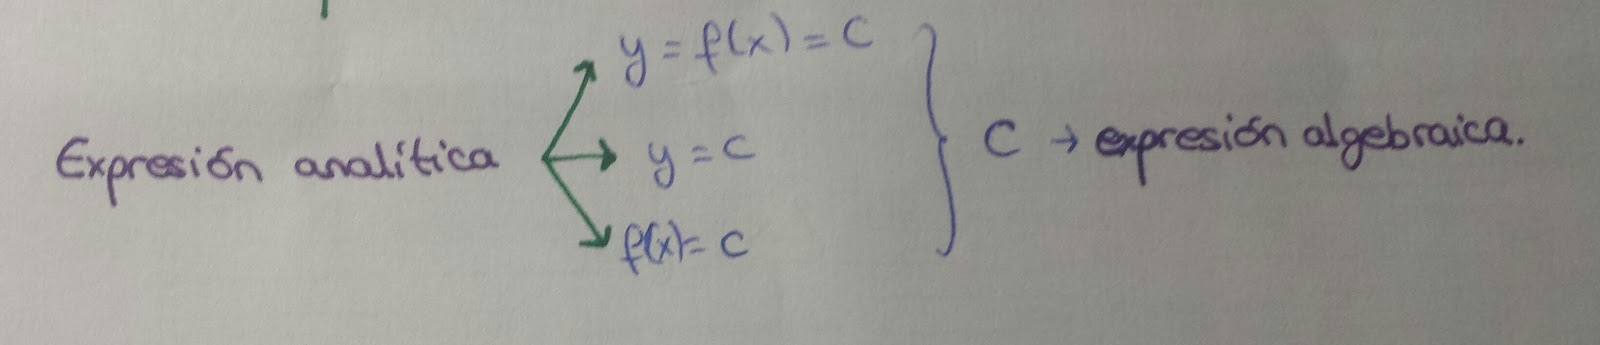 y = f(x) = C
Expresión analítica y = C C → expresión algebraica.
f(x) = C